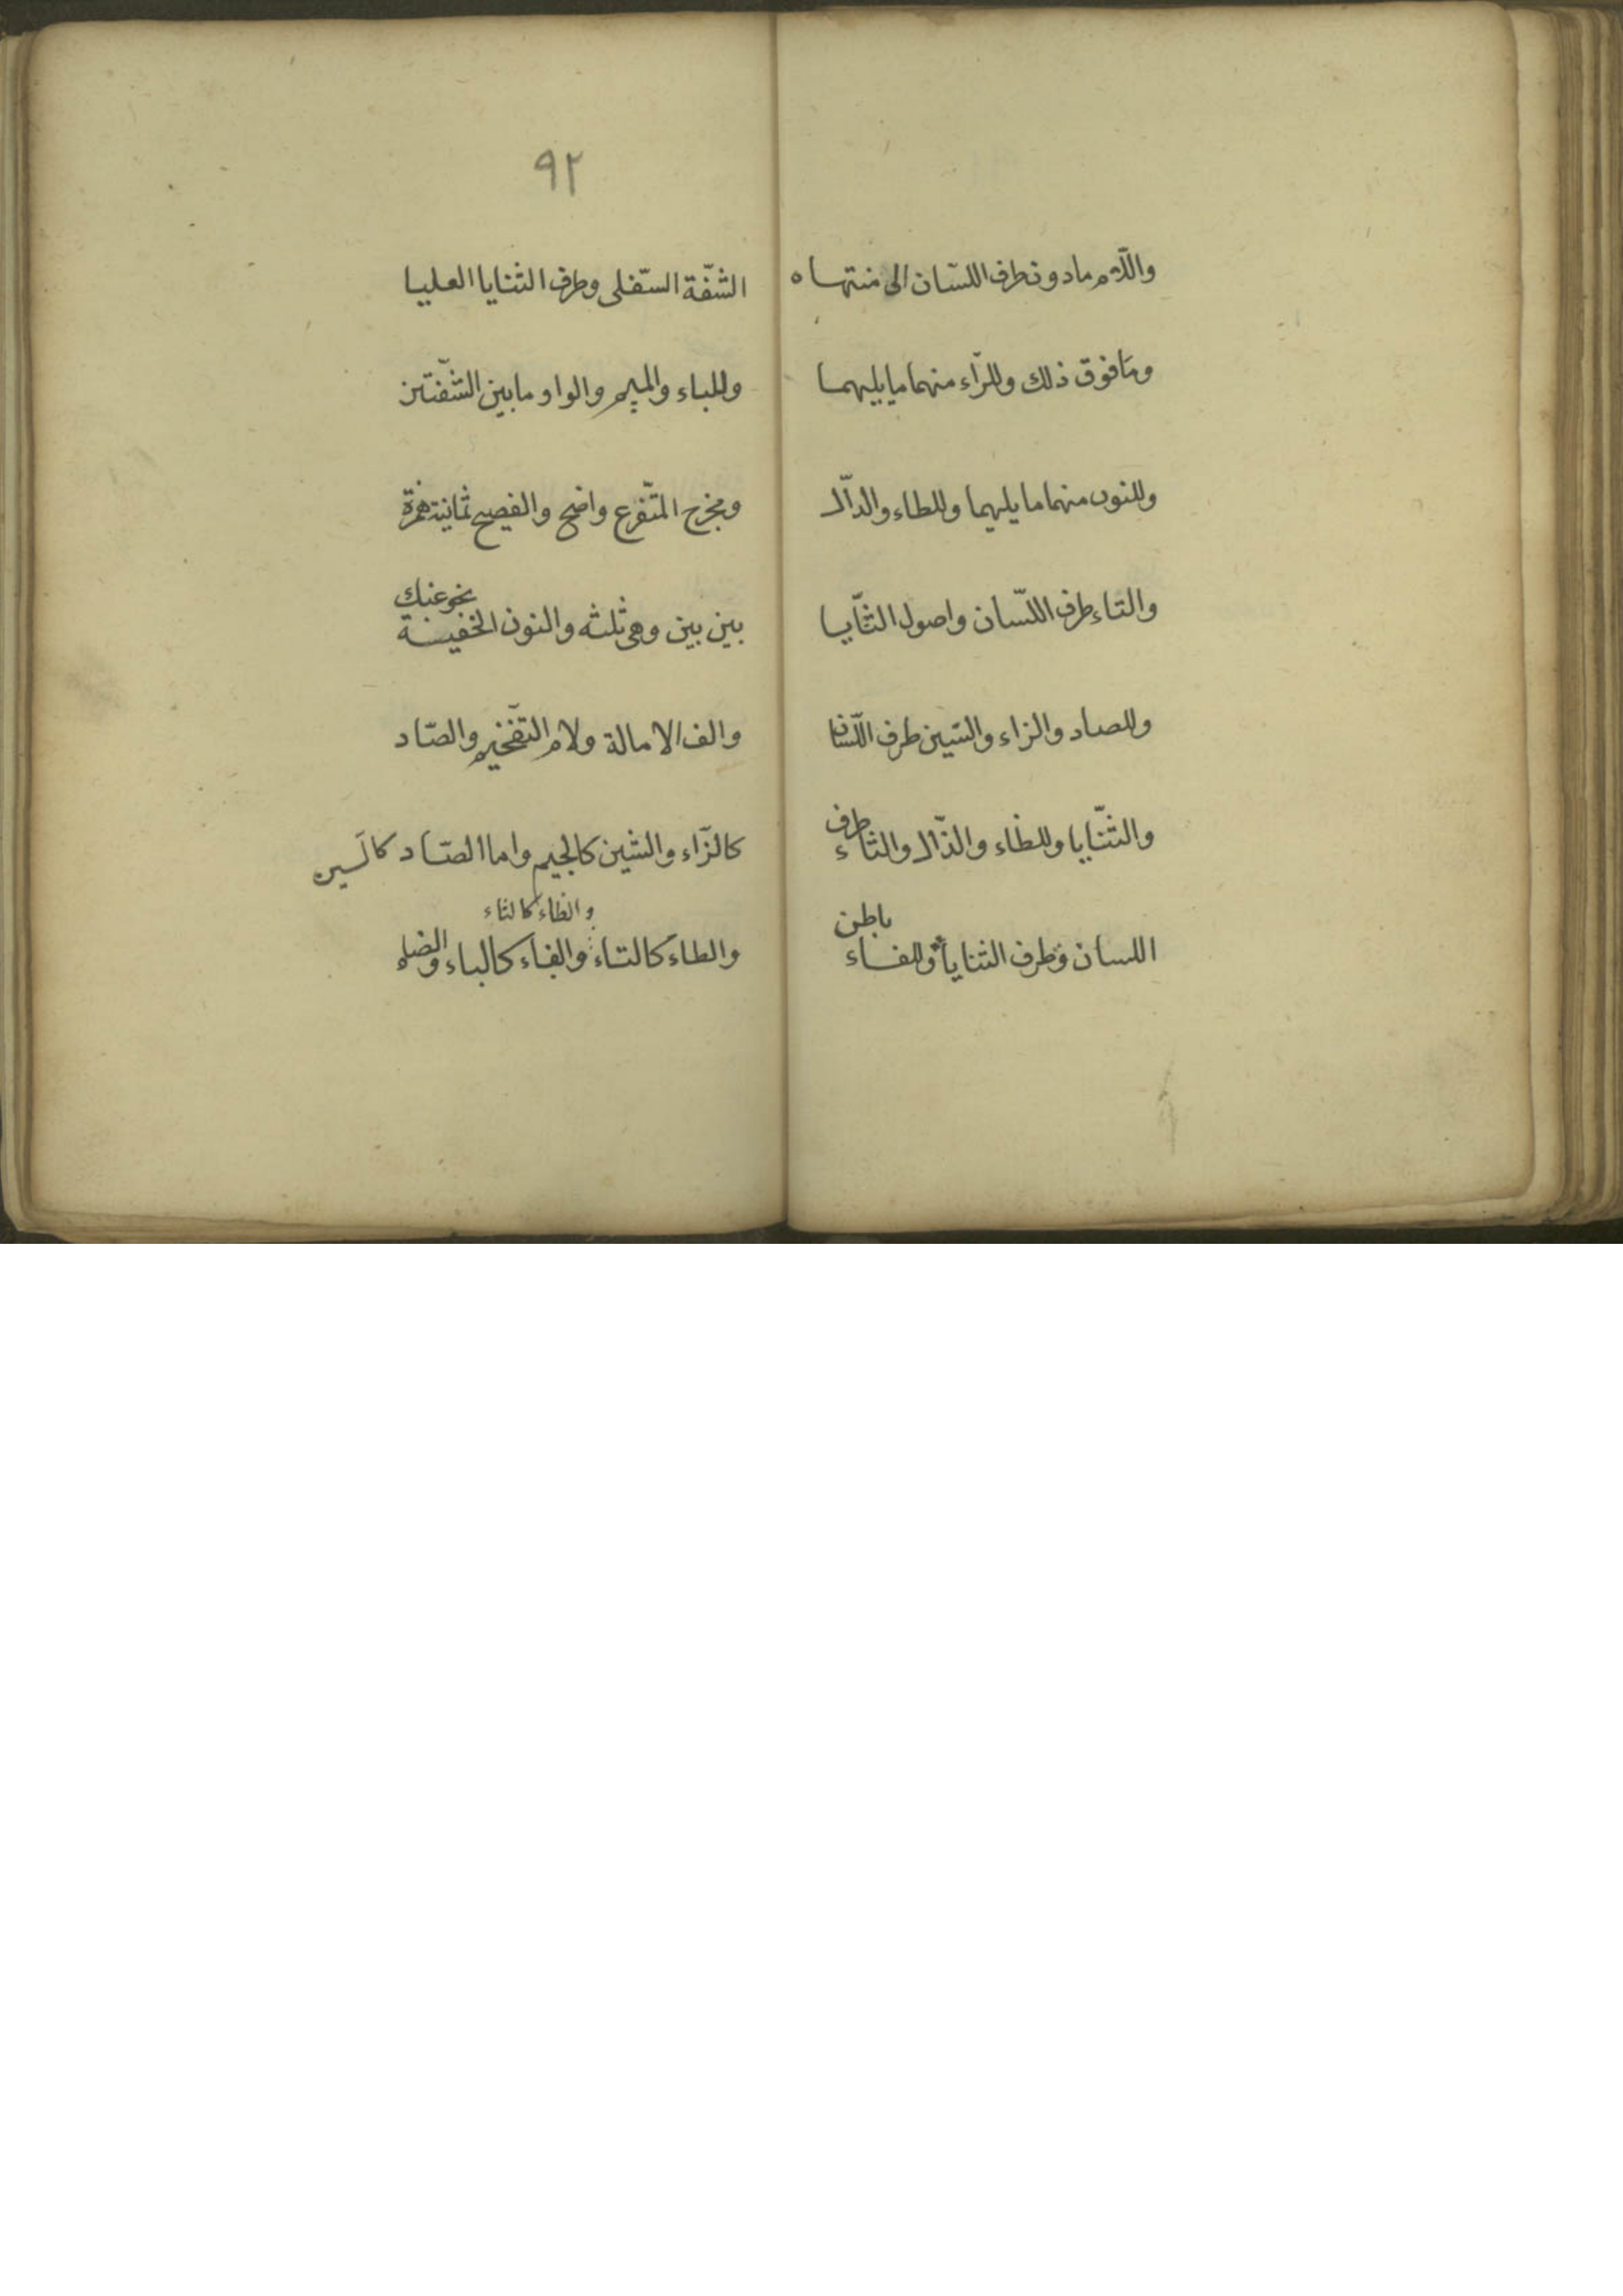 واللّام مادون طرف اللسّان الى منتهاه
ومَا فوق ذلك وللرّاء منهما مايليهما
وللنون منهما مايليهما وللطاء والدّال
والتاء طرف اللسّان واصول الثنّايا
وللصاد والزاء والسّين طرف اللّسان
والثنّايا وللظاء والذّال والثاء طرف
باطن
اللسان وطرف الثنايا وللفاء
٩٢
الشّفة السّفلى وطرف الثنايا العليا
وللباء والميم والواو مابين الشّفتين
ومخرج المتّفرع واضح والفصيح ثمانية همزة
نحو عنك
بين بين وهى ثلثه والنون الخفيـة
والف الامالة ولام التّفخيم والصّاد
كالزّاء والشين كالجيم واما الصّاد كالسين
والظاء كالثاء
والطاء كالتاء والفاء كالباء والضاد